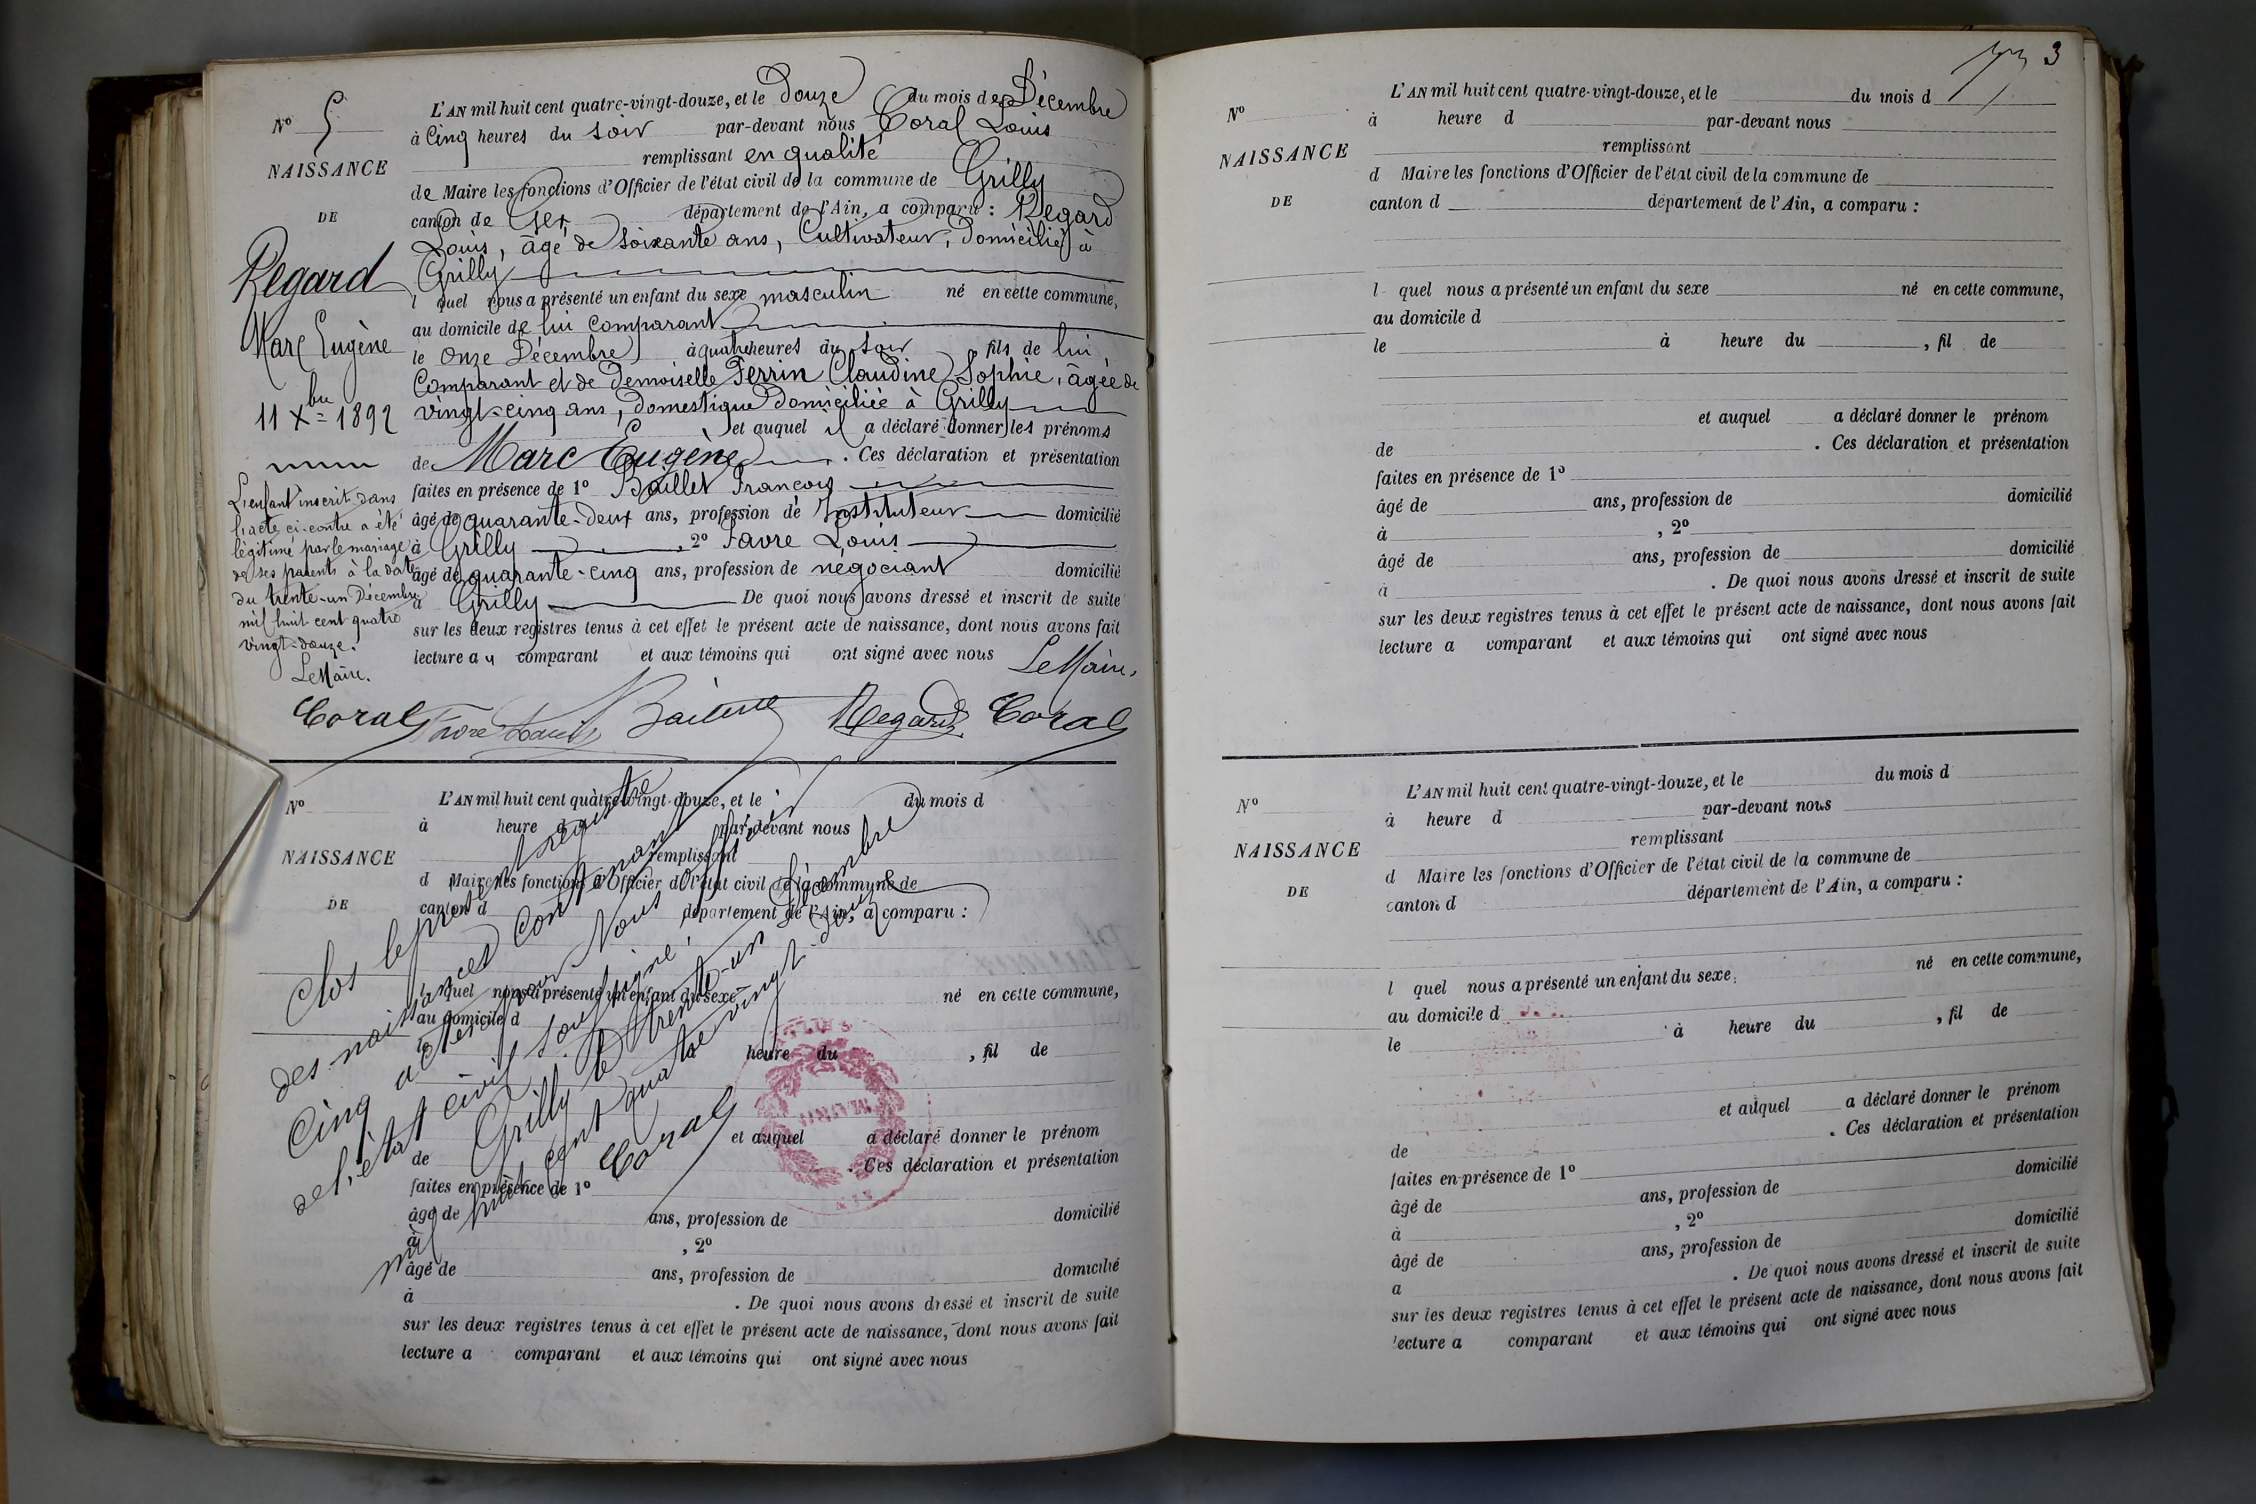 L'AN mil huit cent quatre-vingt-douze, et le Douze du mois de Décembre
N° 5
à Cinq heures du soir par-devant nous Coral Louis
remplissant en qualité
NAISSANCE
de Maire les fonctions d'Officier de l'état civil de la commune de Grilly
DE
canton de Gex département de l'Ain, a comparu : Regard
Louis, âgé de soixante ans, Cultivateur, Domicilié à
Grilly
Regard
l quel nous a présenté un enfant du sexe masculin né en cette commune,
au domicile de lui Comparant
Marc Eugène
le Onze Décembre à quatre heures du soir fils de lui
Comparant et de Demoiselle Perrin Claudine Sophie, âgée de
11 Xbre 1892
vingt-cinq ans, domestique domiciliée à Grilly
et auquel il a déclaré donner les prénoms
de Marc Eugène . Ces déclaration et présentation
faites en présence de 1° Baillet François
âgé de quarante-deux ans, profession de Instituteur domicilié
à Grilly , 2° Favre Louis
âgé de quarante-cinq ans, profession de négociant domicilié
à Grilly De quoi nous avons dressé et inscrit de suite
sur les deux registres tenus à cet effet le présent acte de naissance, dont nous avons fait
lecture au comparant et aux témoins qui ont signé avec nous Le Maire.
L'enfant inscrit dans
l'acte ci-contre a été
légitimé par le mariage
de ses parents à la date
du trente-un Décembre
mil huit cent quatre
vingt-douze.
Le Maire.
Coral Favre Louis Regard Coral
N°
L'AN mil huit cent quatre-vingt-douze, et le du mois d
à heure d par-devant nous
remplissant
NAISSANCE
d Maire les fonctions d'Officier de l'état civil de la commune de
DE
canton d département de l'Ain, a comparu :
l quel nous a présenté un enfant du sexe né en cette commune,
au domicile d
le à heure du , fil de
et auquel a déclaré donner le prénom
de . Ces déclaration et présentation
faites en présence de 1°
âgé de ans, profession de domicilié
à , 2°
âgé de ans, profession de domicilié
à . De quoi nous avons dressé et inscrit de suite
sur les deux registres tenus à cet effet le présent acte de naissance, dont nous avons fait
lecture a comparant et aux témoins qui ont signé avec nous
Clos le présent registre
des naissances Contenant
Cinq actes par Nous officier
de l'état civil soussigné.
Grilly le trente-un Décembre
mil huit cent quatre vingt-douze
Coral
3
L'AN mil huit cent quatre-vingt-douze, et le du mois d
N°
à heure d par-devant nous
remplissant
NAISSANCE
d Maire les fonctions d'Officier de l'état civil de la commune de
DE
canton d département de l'Ain, a comparu :
l quel nous a présenté un enfant du sexe né en cette commune,
au domicile d
le à heure du , fil de
et auquel a déclaré donner le prénom
de . Ces déclaration et présentation
faites en présence de 1°
âgé de ans, profession de domicilié
à , 2°
âgé de ans, profession de domicilié
à . De quoi nous avons dressé et inscrit de suite
sur les deux registres tenus à cet effet le présent acte de naissance, dont nous avons fait
lecture a comparant et aux témoins qui ont signé avec nous
L'AN mil huit cent quatre-vingt-douze, et le du mois d
N°
à heure d par-devant nous
remplissant
NAISSANCE
d Maire les fonctions d'Officier de l'état civil de la commune de
DE
canton d département de l'Ain, a comparu :
l quel nous a présenté un enfant du sexe né en cette commune,
au domicile d
le à heure du , fil de
et auquel a déclaré donner le prénom
de . Ces déclaration et présentation
faites en présence de 1°
âgé de ans, profession de domicilié
à , 2°
âgé de ans, profession de domicilié
a . De quoi nous avons dressé et inscrit de suite
sur les deux registres tenus à cet effet le présent acte de naissance, dont nous avons fait
lecture a comparant et aux témoins qui ont signé avec nous